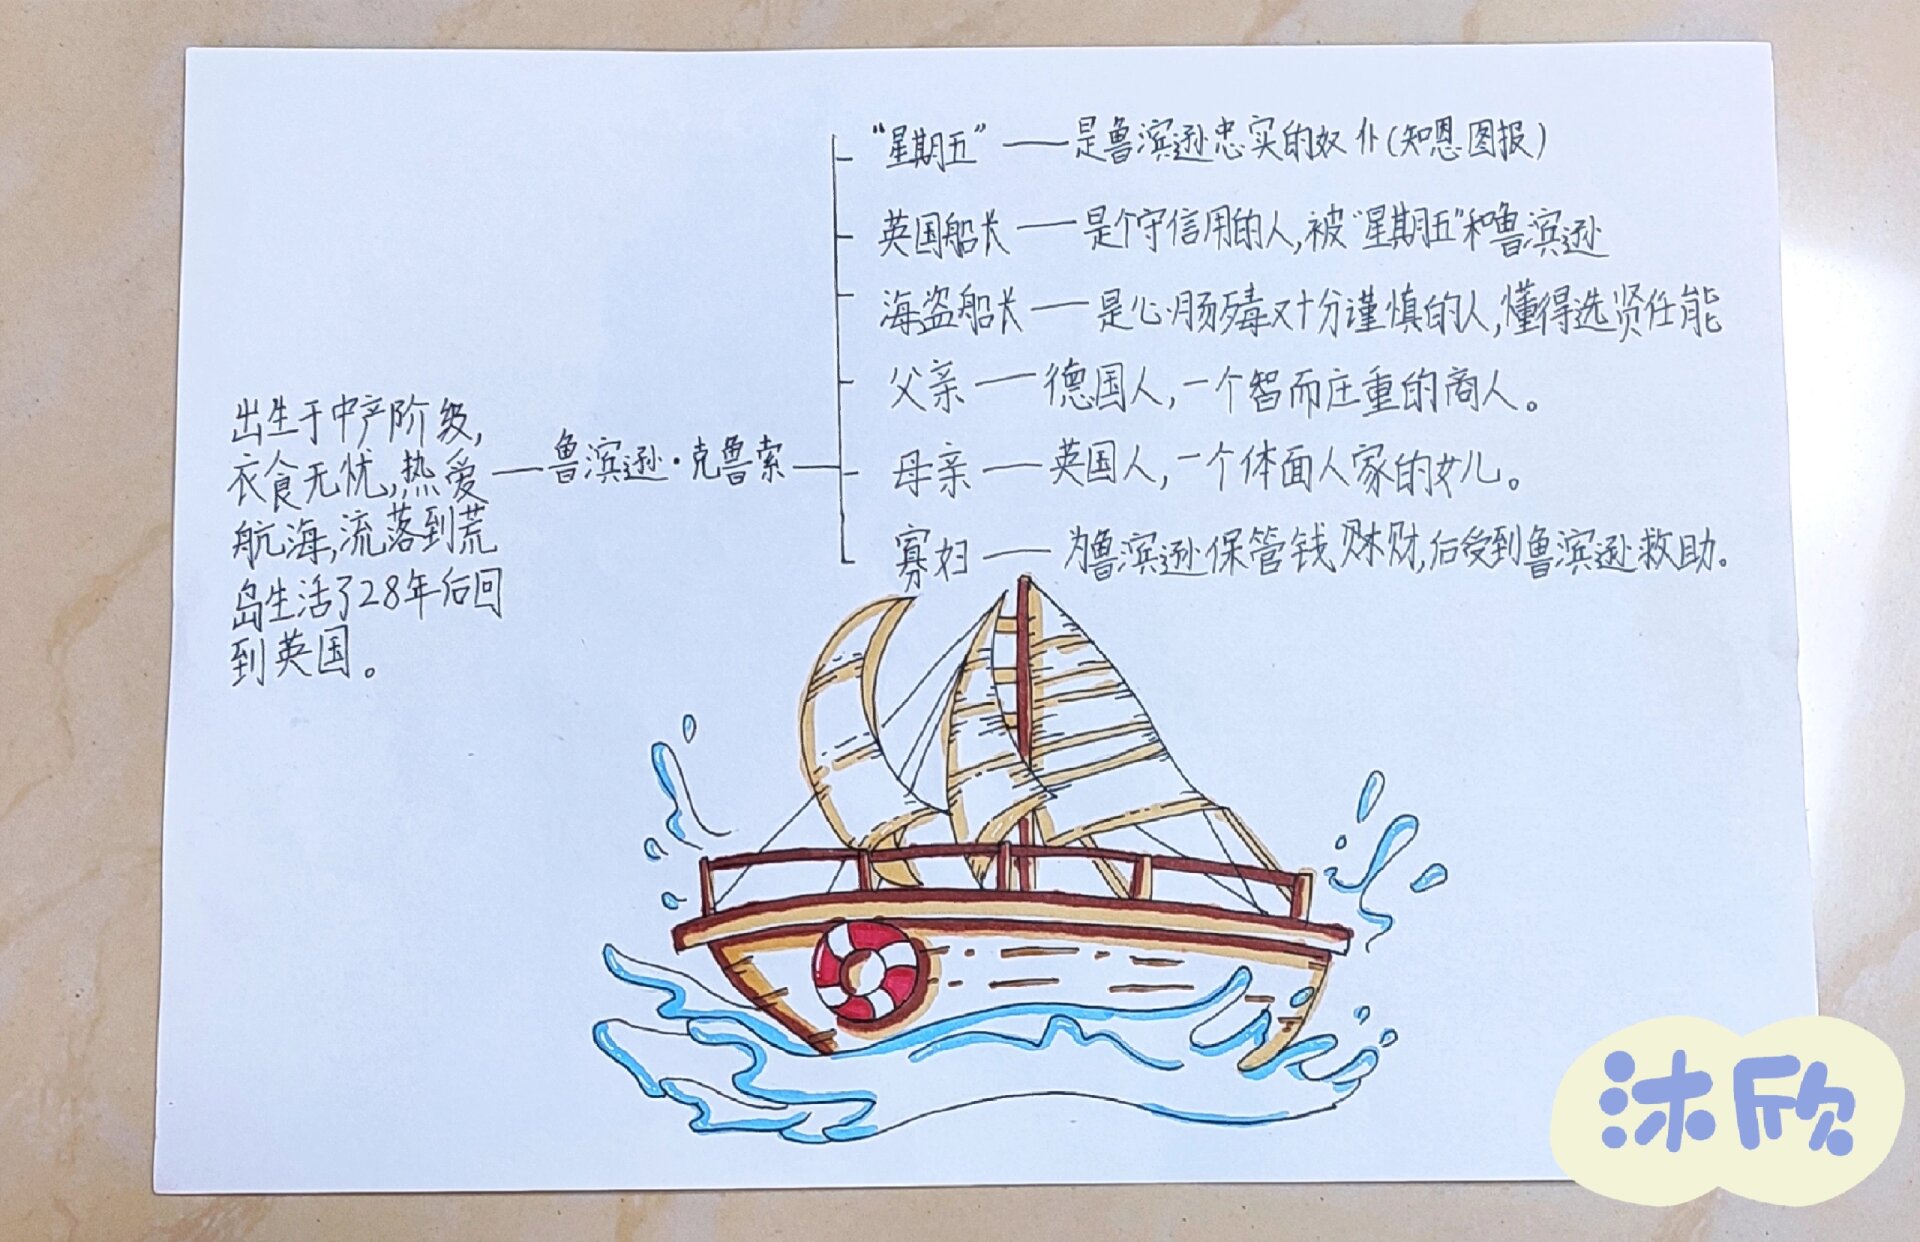 “星期五”——是鲁滨逊忠实的奴仆(知恩图报)
英国船长——是个守信用的人,被“星期五”和鲁滨逊
海盗船长——是心肠歹毒又十分谨慎的人,懂得选贤任能
父亲——德国人,一个智而庄重的商人。
母亲——英国人,一个体面人家的女儿。
寡妇——为鲁滨逊保管钱财,后受到鲁滨逊救助。
鲁滨逊·克鲁索
出生于中产阶级,
衣食无忧,热爱
航海,流落到荒
岛生活了28年后回
到英国。
沐欣